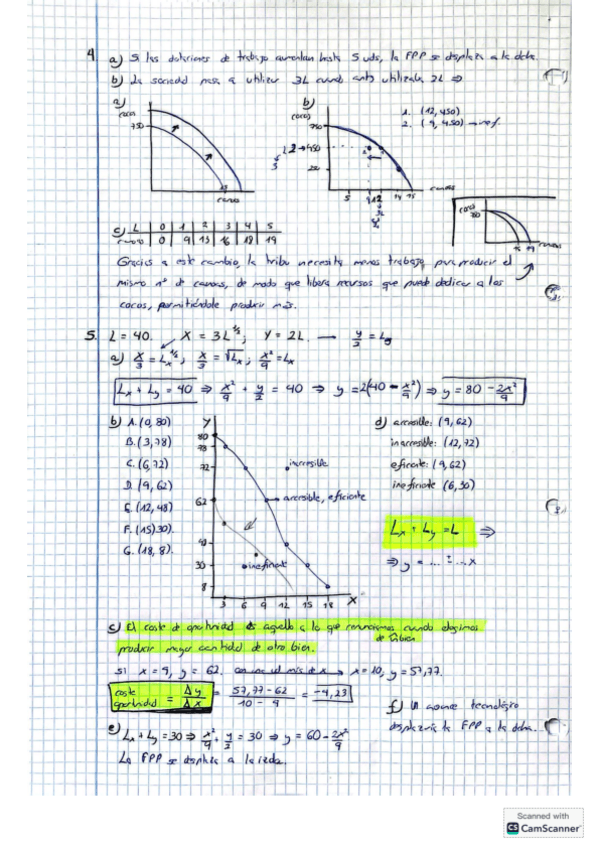 4 a) Si las dotaciones de trabajo aumentan hasta 5 uds, la FPP se desplaza a la dcha.
b) La sociedad pasa a utilizar 3L cuando antes utilizaba 2L ⇒
a)
cocos
750
15
canoas
b)
(cocos)
750
2 → 450
3
5 9 12 14 15
canoas
1. (12,450)
2. (9,450) → ref.
(cocos)
c) L 0 1 2 3 4 5
canoas 0 9 13 16 18 19
Gracias a este cambio, la tribu necesita menos trabajo para producir el
mismo nº de canoas, de modo que libera recursos que puede dedicar a los
cocos, permitiéndole producir más.
5. L = 40. X = 3L^1/2; Y = 2L. — y/2 = Ly
a) x/3 = Lx^1/2; x/3 = √Lx; x²/9 = Lx
Lx + Ly = 40 ⇒ x²/9 + y/2 = 40 ⇒ y = 2(40 - x²/9) ⇒ y = 80 - 2x²/9
b) A. (0,80)
B. (3,78)
C. (6,72)
D. (9,62)
E. (12,48)
F. (15,30).
G. (18,8).
y
80
78
72
62
48
30
8
inaccesible
accesible, eficiente
ineficient
3 6 9 12 15 18 X
d) accesible: (9,62)
inaccesible: (12,72)
eficiente: (9,62)
ineficiente (6,30)
Lx + Ly = L ⇒
⇒ y = ... ± ... x
c) El coste de oportunidad es aquello a lo que renunciamos cuando elegimos
producir mayor cantidad de otro bien.
si x = 9, y = 62. con una ud más de x → x = 10, y = 57,77.
coste oportunidad = Δy/Δx = 57,77 - 62 / 10 - 9 = -4,23
e) Lx + Ly = 30 ⇒ x²/9 + y/2 = 30 ⇒ y = 60 - 2x²/9
La FPP se desplaza a la izda.
f) Un avance tecnológico
desplazaría la FPP a la dcha.
Scanned with
CS CamScanner